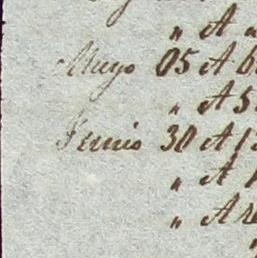 „ A
Mayo 05 A 6
„ A 5
Junio 30 A 1
„ A
„ A
„